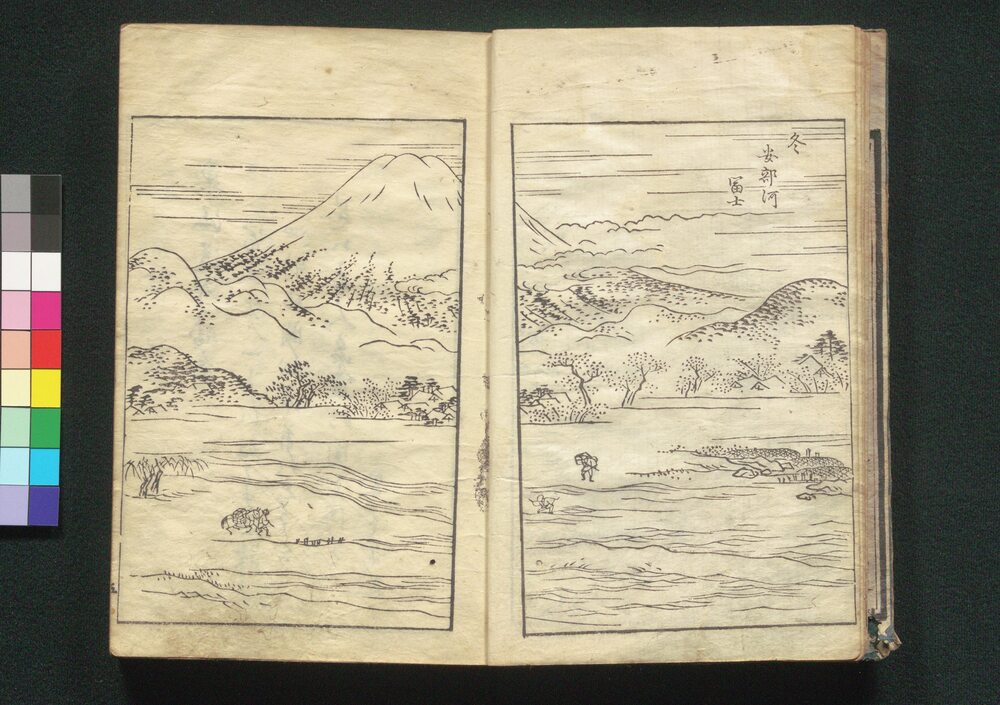 冬
安部河
冨士